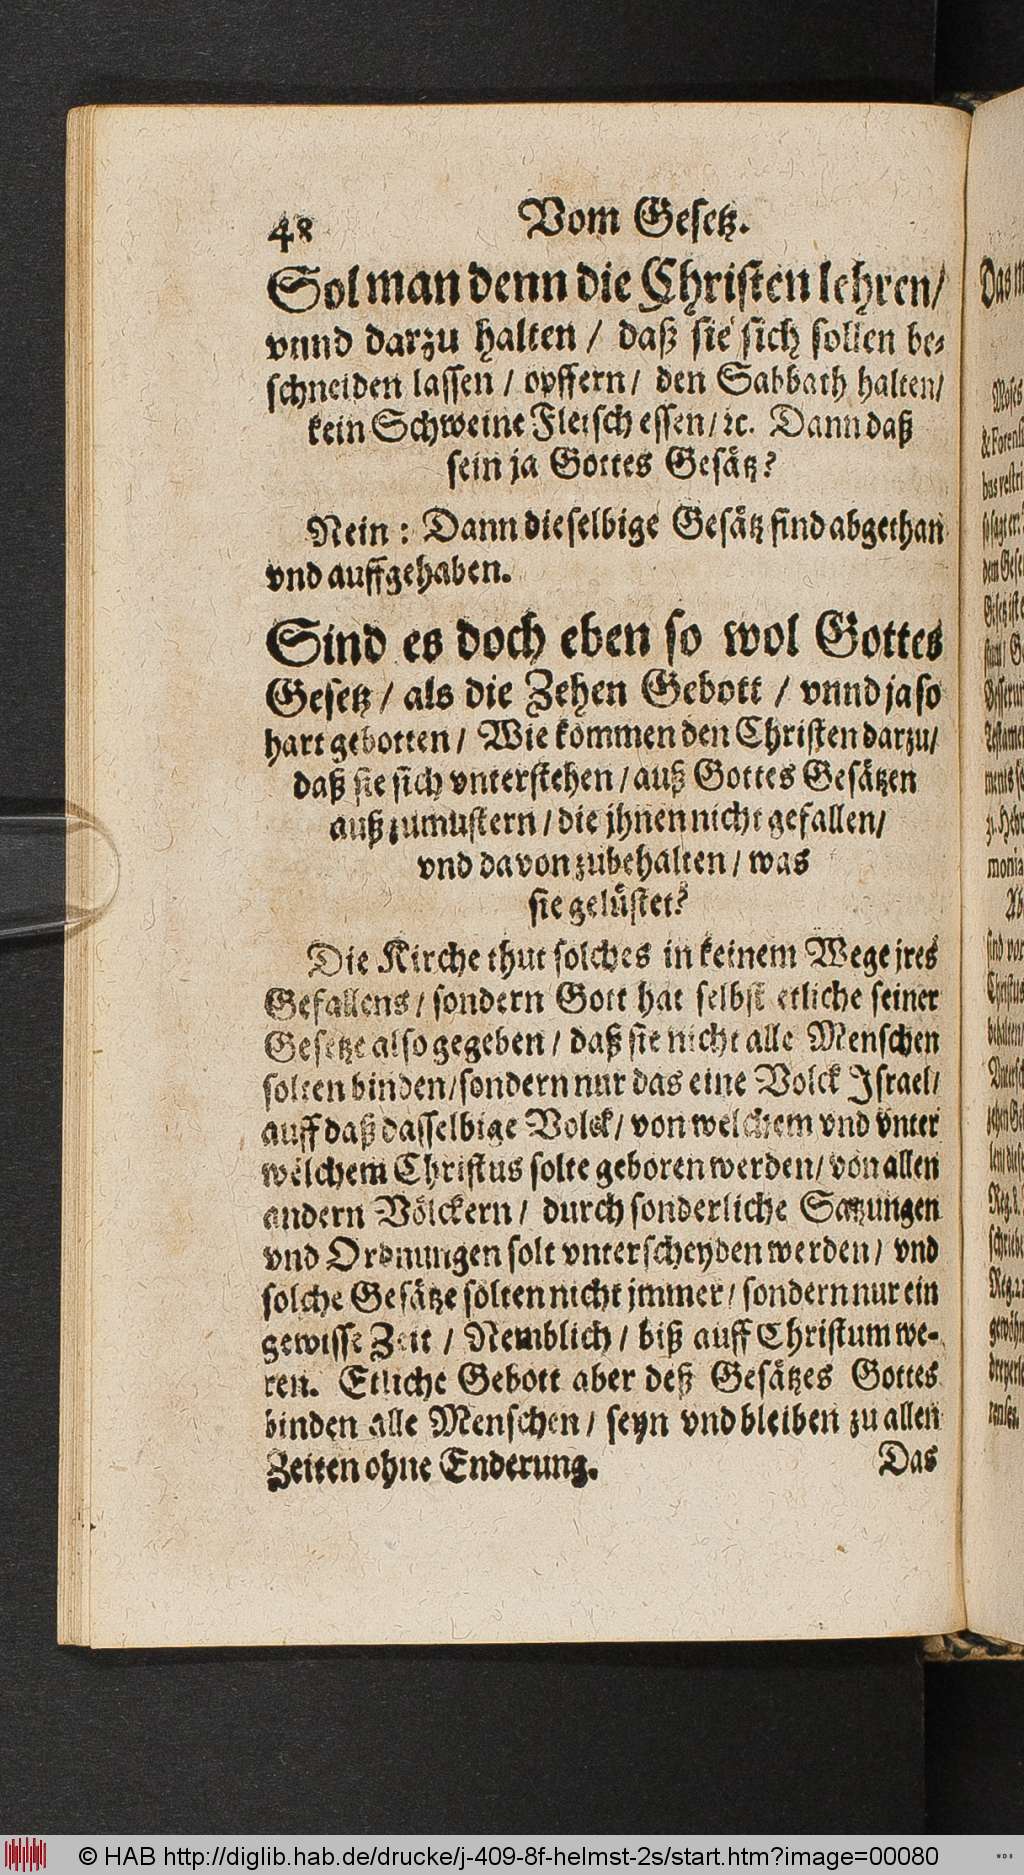 48 Vom Gesetz.
Sol man denn die Christen lehren/
vnnd darzu halten / daß sie sich sollen be-
schneiden lassen / opffern / den Sabbath halten/
kein Schweine Fleisch essen / ꝛc. Dann daß
sein ja Gottes Gesätz?
Nein : Dann dieselbige Gesätz sind abgethan
vnd auffgehaben.
Sind es doch eben so wol Gottes
Gesetz / als die Zehen Gebott / vnnd ja so
hart gebotten / Wie kommen den Christen darzu/
daß sie sich vnterstehen / auß Gottes Gesätzen
auß zumustern / die jhnen nicht gefallen/
vnd davon zubehalten / was
sie gelüstet?
Die Kirche thut solches in keinem Wege jres
Gefallens / sondern Gott hat selbst etliche seiner
Gesetze also gegeben / daß sie nicht alle Menschen
solten binden/sondern nur das eine Volck Israel/
auff daß dasselbige Volck / von welchem vnd vnter
welchem Christus solte geboren werden/ von allen
andern Völckern / durch sonderliche Satzungen
vnd Ordnungen solt vnterscheyden werden / vnd
solche Gesätze solten nicht jmmer / sondern nur ein
gewisse Zeit / Nemblich / biß auff Christum we-
ren. Etliche Gebott aber deß Gesätzes Gottes
binden alle Menschen / seyn vnd bleiben zu allen
Zeiten ohne Enderung. Das
© HAB http://diglib.hab.de/drucke/j-409-8f-helmst-2s/start.htm?image=00080